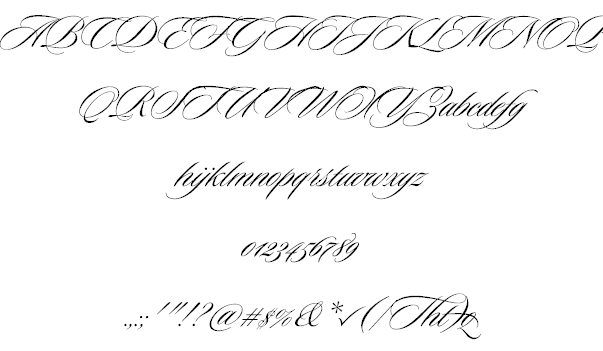 ABCDEFGHIJKLMNOP
QRSTUVWXYZabcdefg
hijklmnopqrstuvwxyz
0123456789
.,:; '"!?@#$%&*✓(/Tht)